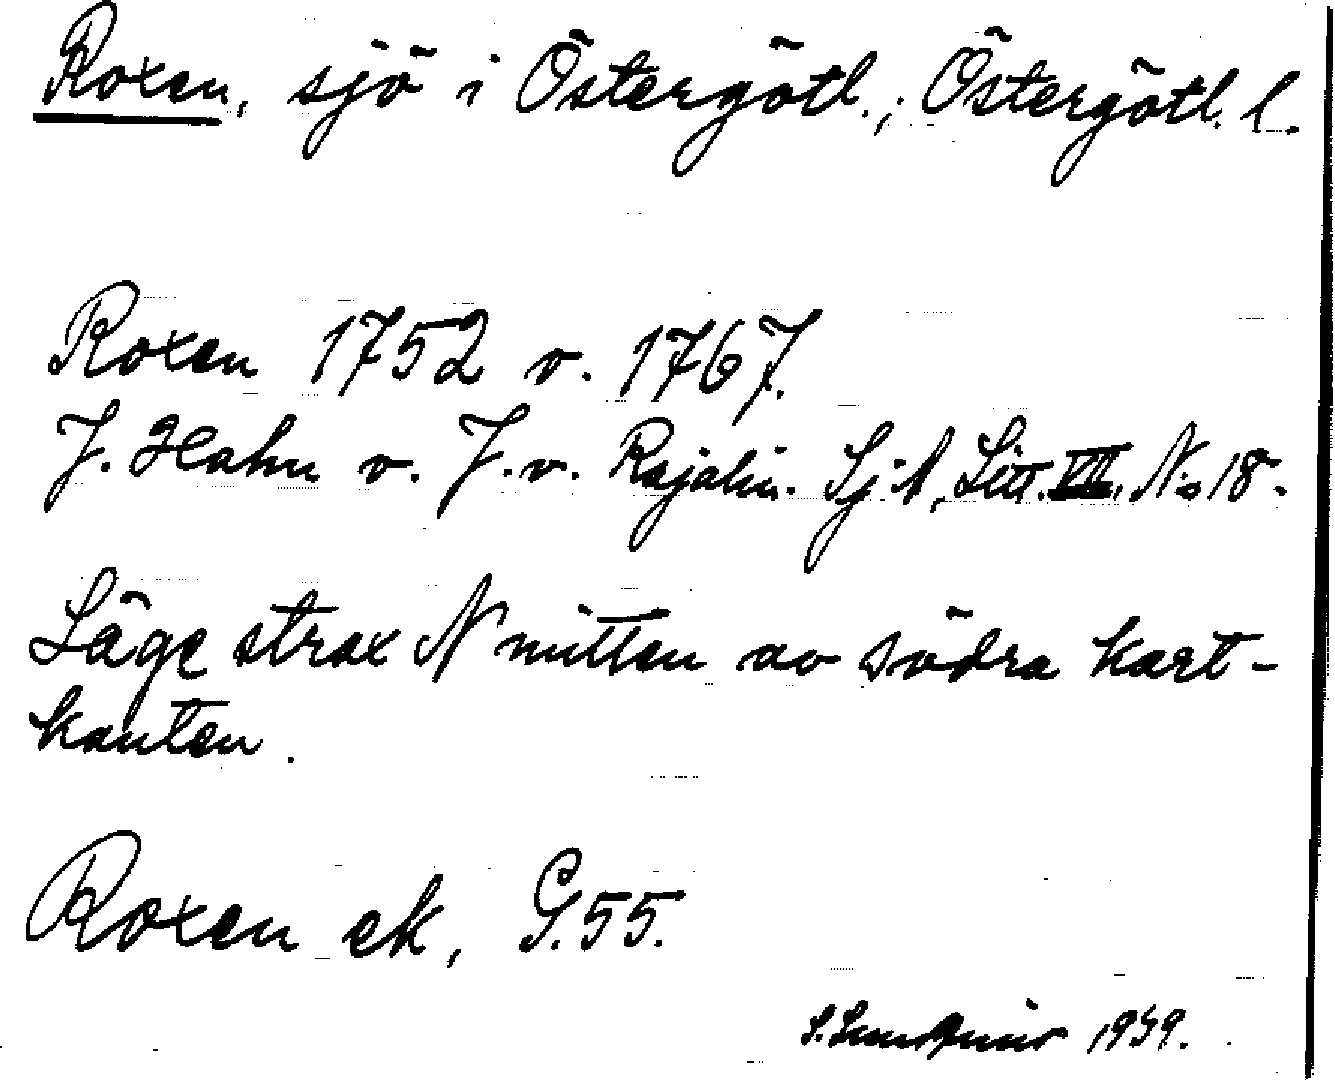 Roxen, sjö i Östergötl., Östergötl. l.
Roxen 1752 o. 1767.
J. Hahn o. J. v. Rajalin. Sj.A, Litt. VII, No 18.
Läge strax N mitten av södra kart-
kanten.
Roxen ek, G.55.
S. Lundquist 1939.